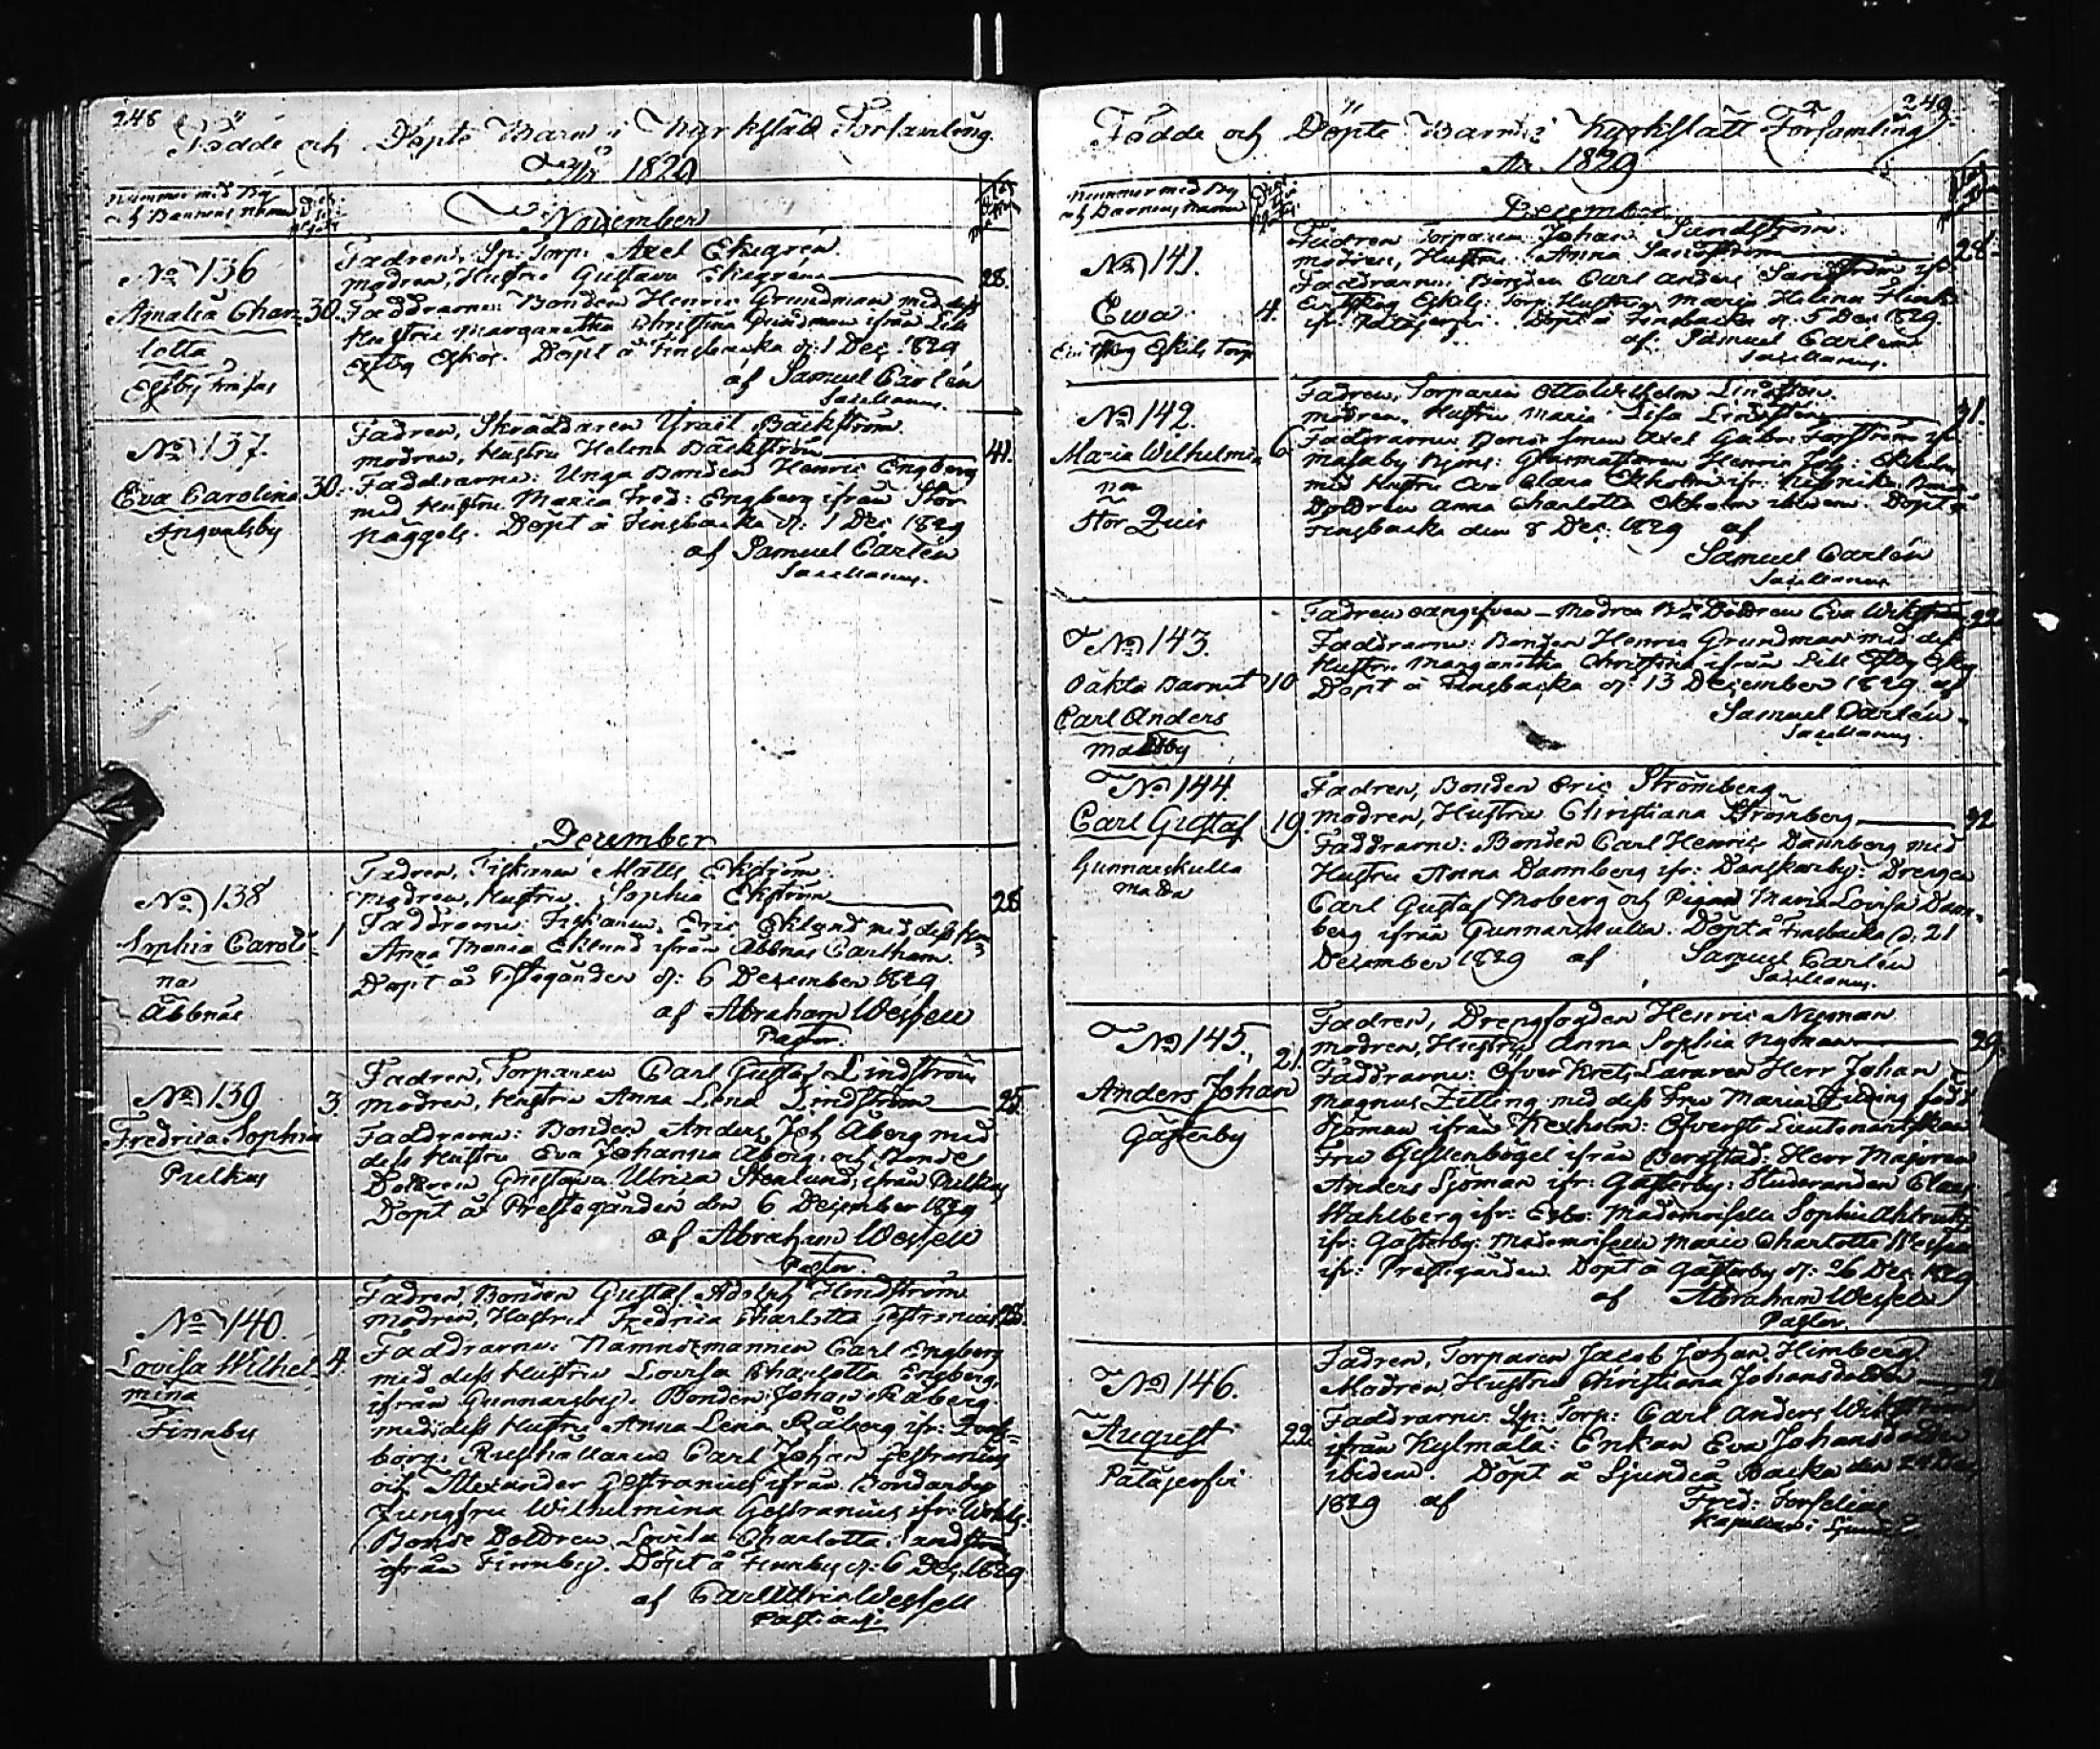 248
Födde och Döpte Barn i Kyrkslätt Församling.
År 1829
Nummer med By
och Barnens namn
November
No 136
Amalia Char-
lotta
Esby
30.
Fadren, Sp: Torp: Axel Ekegren.
modren, Hustru Gustava Ekegren 28.
Faddrarne: Bonden Henric Grundman med dess
Hustru Margaretha Christina Grundman ifrån Lill
Esby Eskos. Döpt å Finsbacka d: 1 Dec. 1829
af Samuel Carlén
Sacellanus.
No 137.
Eva Carolina
Ingvalsby
30.
Fadren, Skräddaren Israel Bäckström.
modren, Hustru Helena Bäckström 41.
Faddrarne: Unga Bonden Henric Engberg
med Hustru Maria Fred: Engberg ifrån Stor
Näggels. Döpt å Finsbacka d: 1 Dec 1829
af Samuel Carlén
Sacellanus.
December
No 138
Sophia Caroli-
na
Åbbnäs
1
Fadren, Fiskaren Matts Ekström.
modren, Hustru Sophia Ekström 28
Faddrarne: Fiskaren Eric Eklund med dess
Anna Maria Eklund ifrån Åbbnäs
Döpt å Prestegården d: 6 December 1829
af Abraham Wessell
Pastor.
No 139
Fredrica Sophia
Pulkus
3.
Fadren, Torparen Carl Gustaf Lindström
modren, Hustru Anna Lena Lindström 25.
Faddrarne: Bonden Anders Joh Åberg med
dess Hustru Eva Johanna Åberg: och Bonde
Dottren Gustava Ulrica Stenlund ifrån Pulkus
Döpt å Prestegården den 6 December 1829
af Abraham Wessell
Pastor.
No 140.
Lovisa Wilhel-
mina
Finnby
4.
Fadren, Bonden Gustaf Adolph Lindström
modren, Hustru Fredrica Charlotta Gestranius 28.
Faddrarne: Nämndemannen Carl Engberg
med dess Hustru Lovisa Charlotta Engberg,
ifrån Gunnarsby. Bonden Johan Råberg
med dess Hustru Anna Lena Råberg ifr:
borg: Rusthållaren Carl Johan Gestranius
och Alexander Gestranius ifrån Bondarby
Jungfru Wilhelmina Gestranius ifr:
Bonde Dottren Lovisa Charlotta Lindström
ifrån Finnby. Döpt å Finnby d: 6 Dec. 1829
af Carl Ulric Wessell
Past: adj:
249
Födde och Döpte Barn i Kyrkslätt Församling
År 1829
Nummer med By
och Barnens namn
December
No 141.
Ewa
Eskils Torp
4.
Fadren Torparen Johan Sundström.
modren, Hustru Anna Sundström 28.
Faddrarne: Carl Anders Sundström ifr:
Eskils: Torp: Hustrun Maria Helena
ifr: Patajerfvi. Döpt å Finsbacka d. 5 Dec 1829.
af Samuel Carlén
Sacellanus.
No 142.
Maria Wilhelmi-
na
Stor Quis
6
Fadren, Torparen Otto Wilhelm Lindsten.
modren, Hustru Maria Lisa Lindsten 31.
Faddrarne: Bonde Sonen Axel Gabr: Forsström ifr
Masaby Henric Joh: Ekholm
med Hustru Eva Clara Ekholm ifr:
Dottren Anna Charlotta Ekholm Döpt å
Finsbacka den 8 Dec: 1829 af
Samuel Carlén
Sacellanus
No 143.
Oäkta Barnet
Carl Anders
10
Fadren oangifven - Modren Dottren Eva Wikström 22
Faddrarne: Bonden Henric Grundman med dess
Hustru Margaretha Christina ifrån Lill Esby
Döpt å Finsbacka d: 13 December 1829 af
Samuel Carlén.
Sacellanus.
No 144.
Carl Gustaf
Gunnarskulla
19.
Fadren, Bonden Eric Strömberg.
modren, Hustru Christiana Strömberg 32
Faddrarne: Bonden Carl Henric Dannberg med
Hustru Anna Dannberg ifr: Danskarby: Drengen
Carl Gustaf Moberg och Pigan Maria Lovisa Dann-
berg ifrån Gunnarskulla. Döpt å Finsbacka d: 21
December 1829 af Samuel Carlén
Sacellanus.
No 145.
Anders Johan
Gästerby
21.
Fadren, Drengfogden Henric Nyman
modren, Hustru Anna Sophia Nyman 29.
Faddrarne: Öfver Krets Läraren Herr Johan
Magnus Zitting med dess Fru Maria Zitting född
Sjöman ifrån Kexholm: Öfverst Lieutenantskan
Fru Gyllenbögel ifrån Bergstad: Herr Majoren
Anders Sjöman ifr: Gästerby: Studeranden Claes
Wahlberg ifr: Esbo: Mademoiselle Sophia
ifr: Gästerby: Mademoiselle Maria Charlotta Wessell
ifr: Prestegården. Döpt å Gästerby d: 26 Dec 1829
af Abraham Wessell
Pastor.
No 146.
August
Patajerfvi
22
Fadren, Torparen Jacob Johan Himberg
Modren, Hustru Christiana Johansdotter
Faddrarne: Sp: Torp: Carl Anders Wikström
ifrån Kylmälä: Enkan Eva Johansdotter
ibidem. Döpt å Sjundeå Backa den
1829 af Fred: Forselius
Kapellan i Sjundeå